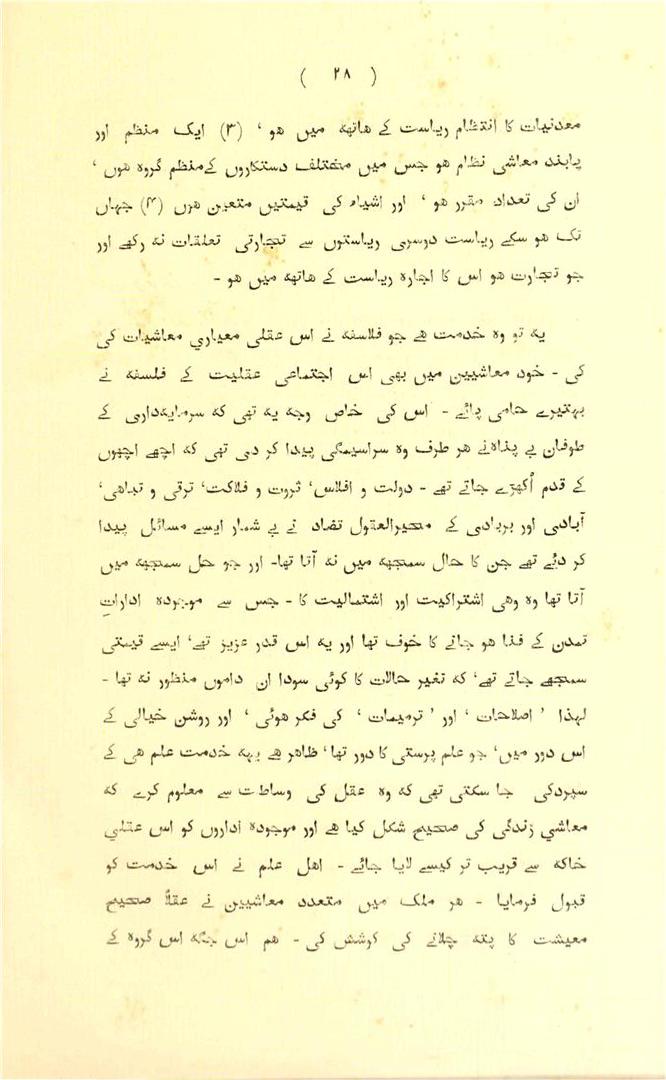 ( ۲۸ )
معدنیات کا انتظام ریاست کے هاتهه میں هو ' (۳) ایک منظم اور
پابند معاشی نظام هو جس میں مختلف دستکاروں کےمنظم گروه هوں '
ان کی تعداد مقرر هو ' اور اشیاء کی قیمتیں متعین هوں (۴) جهاں
تک هو سکے ریاست دوسری ریاستوں سے تجارتی تعلقات نه رکهے اور
جو تجارت هو اس کا اجاره ریاست کے هاتهه میں هو -
یه تو وه خدمت هے جو فلاسفه نے اس عقلی معیاری معاشیات کی
کی - خود معاشیین میں بهی اس اجتماعی عقلیت کے فلسفه نے
بهتیرے حامی پائے - اس کی خاص وجه یه تهی که سرمایه‌داری کے
طوفان بے پناه‌نے هر طرف وه سراسیمگی پیدا کر دی تهی که اچهے اچهوں
کے قدم اُکهڑے جاتے تهے - دولت و افلاس' ثروت و فلاکت' ترقی و تباهی'
آبادی اور بربادی کے محیرالعقول تضاد نے بے شمار ایسے مسائل پیدا
کر دئے تهے جن کا حال سمجهه میں نه آتا تها- اور جو حل سمجهه میں
آتا تها وه وهی اشتراکیت اور اشتمالیت کا - جس سے موجوده اداراتِ
تمدن کے فنا هو جانے کا خوف تها اور یه اس قدر عزیز تهے' ایسے قیمتی
سمجهے جاتے تهے' که تغیر حالات کا کوئی سودا ان داموں منظور نه تها -
لهذا ' اصلاحات ' اور ' ترمیمات ' کی فکر هوئی ' اور روشن خیالی کے
اس دور میں' جو علم پرستی کا دور تها' ظاهر هے یهه خدمت علم هی کے
سپردکی جا سکتی تهی که وه عقل کی وساطت سے معلوم کرے که
معاشی زندگی کی صحیح شکل کیا هے اور موجوده اداروں کو اس عقلی
خاکه سے قریب تر کیسے لایا جائے - اهل علم نے اس خدمت کو
قبول فرمایا - هر ملک میں متعدد معاشیین نے عقلاً صحیح
معیشت کا پته چلانے کی کوشش کی - هم اس جگه اس گروه کے